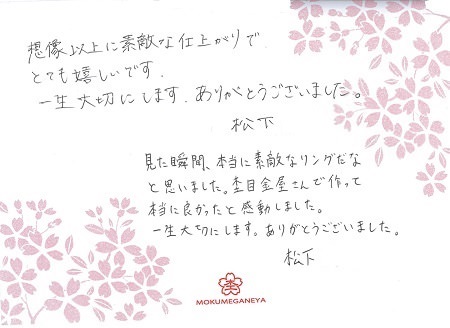 想像以上に素敵な仕上がりで
とても嬉しいです.
一生大切にします. ありがとうございました。
松下
見た瞬間、本当に素敵なリングだな
と思いました。杢目金屋さんで作って
本当に良かったと感動しました。
一生大切にします。ありがとうございました。
松下
MOKUMEGANEYA